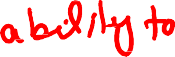 ability to